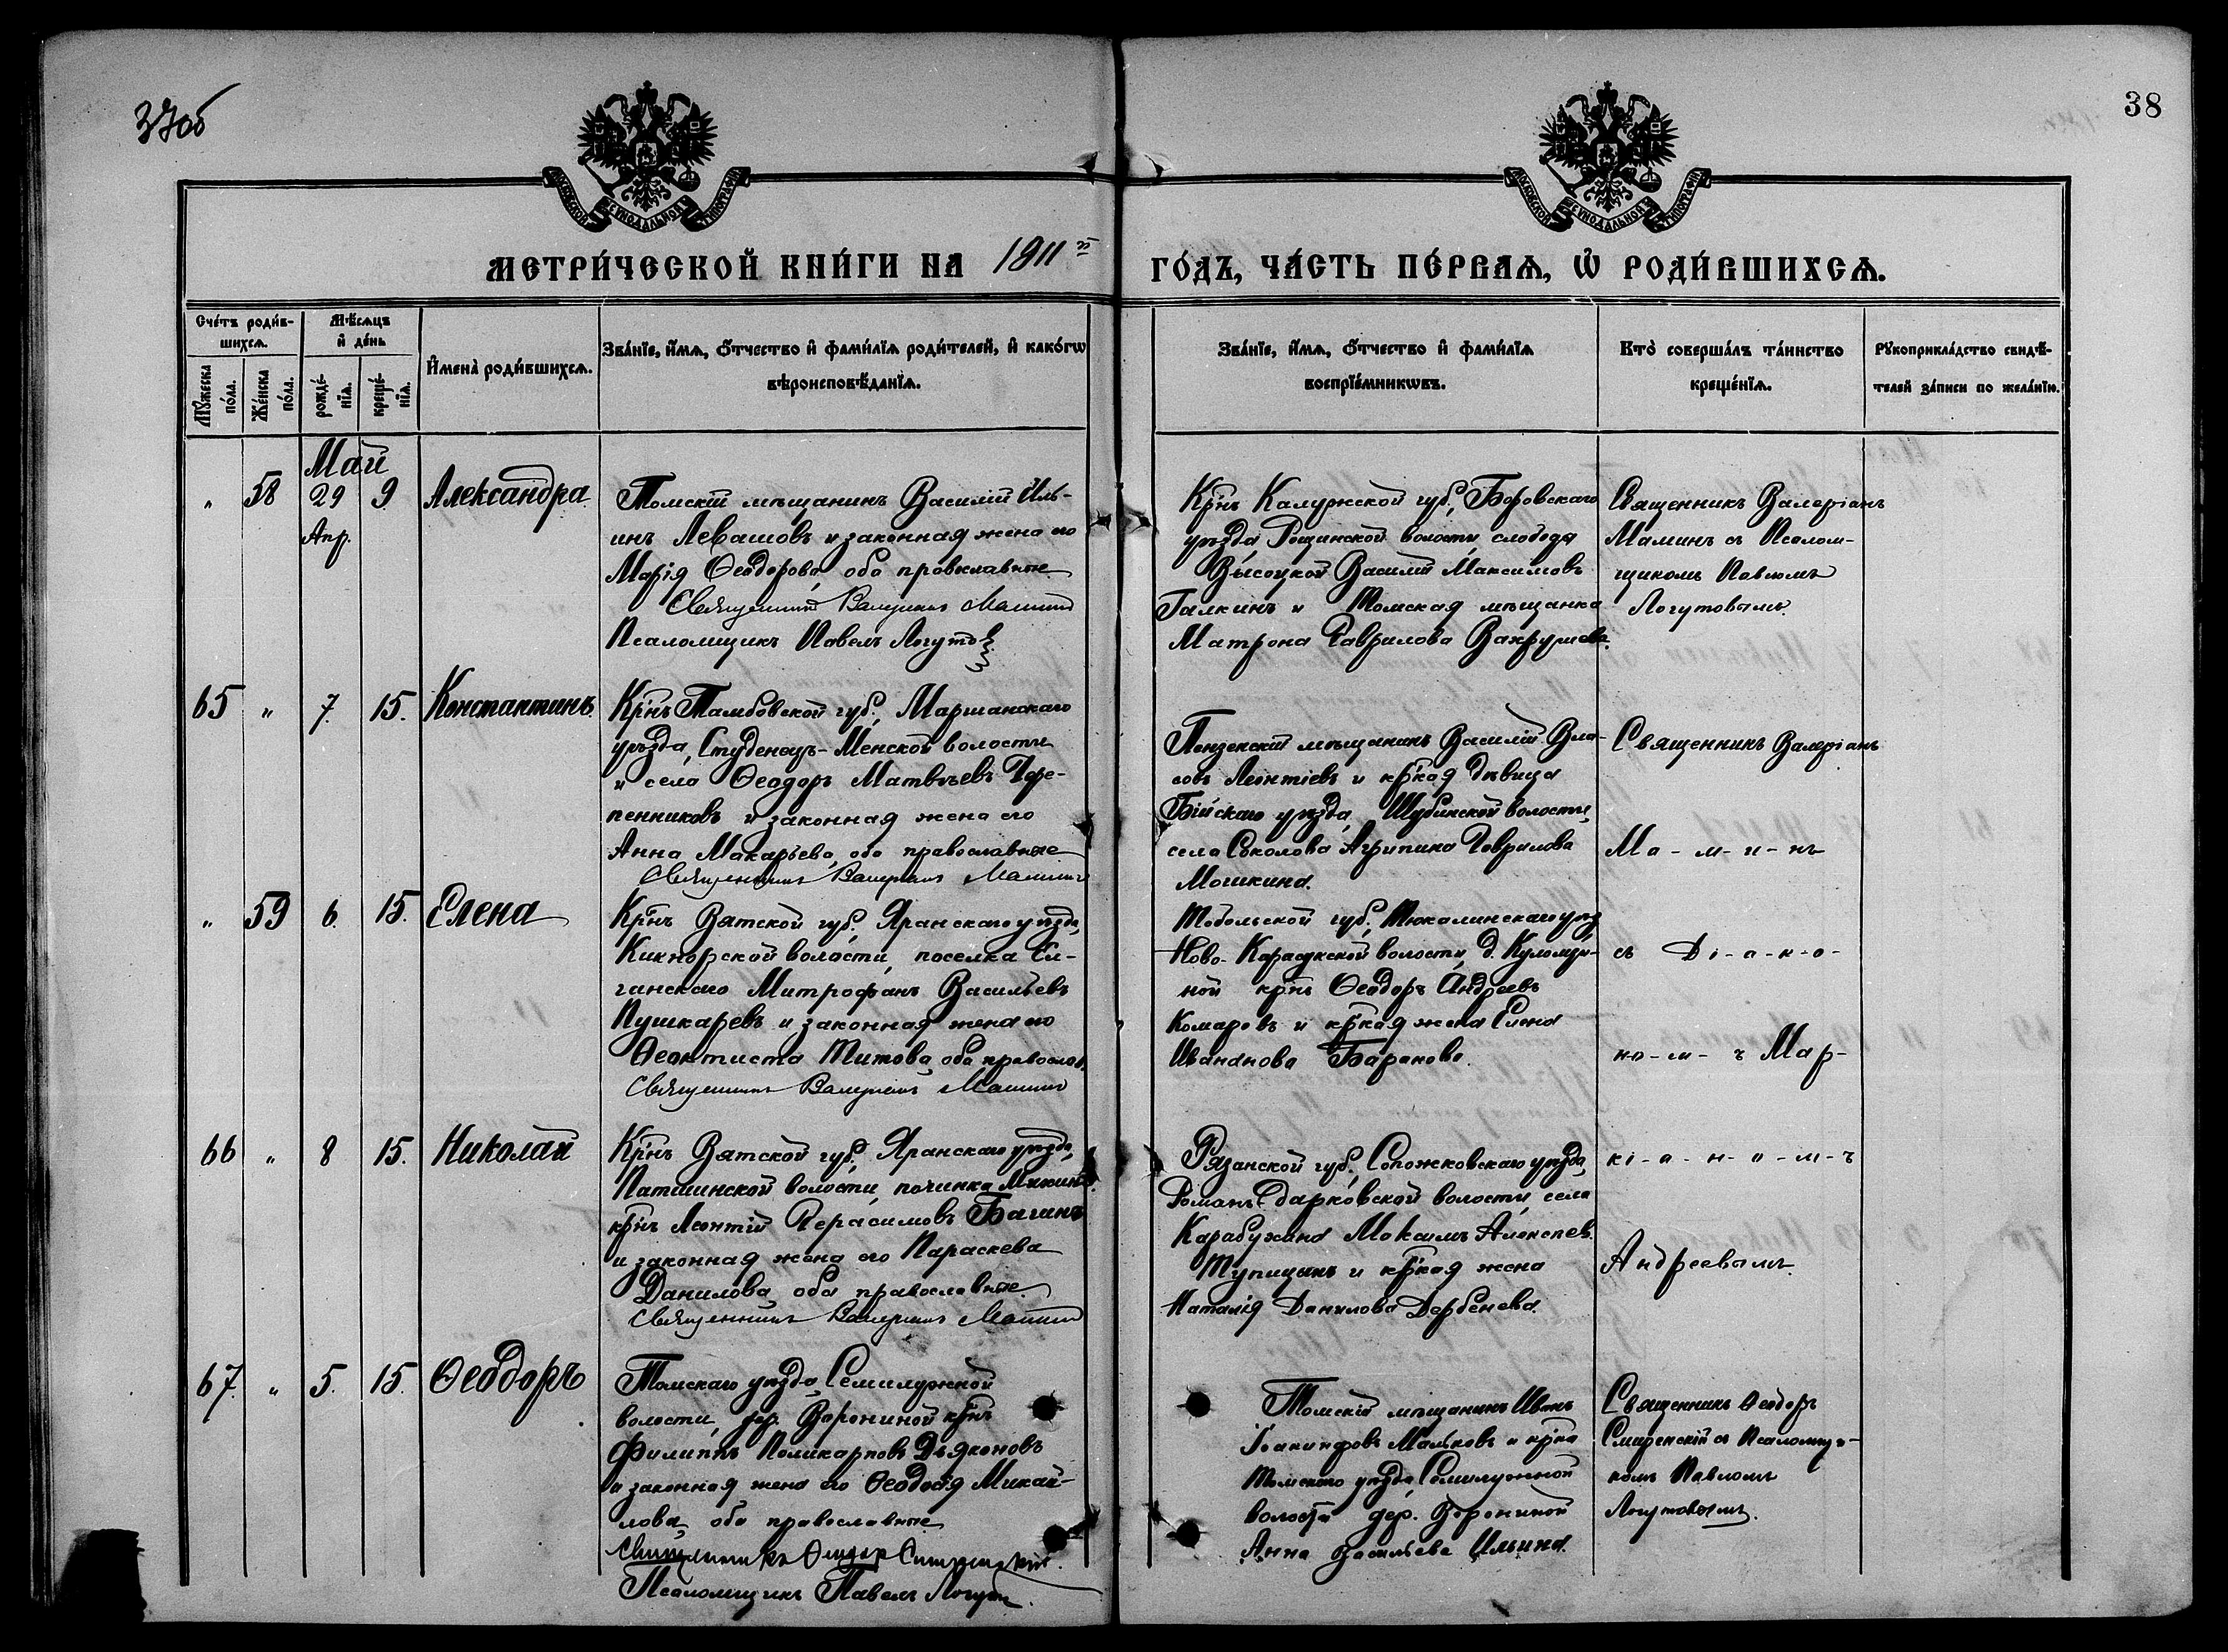 37об
38
МОСКОВСКОЙ СѴНОДАЛЬНОЙ ТИПОГРАФІИ
МОСКОВСКОЙ СѴНОДАЛЬНОЙ ТИПОГРАФІИ
МЕТРИ́ЧЕСКОЙ КНИ́ГИ НА 1911й ГО́ДЪ, ЧА́СТЬ ПЕ́РВАѦ, Ѡ҆ РОДИ́ВШИХСѦ.
Сче́тъ роди́в-
шихсѧ.
Мѣ́сѧцъ
и҆ де́нь
Мꙋ́жеска по́ла.
Же́нска по́ла.
рожде́-
нїѧ.
креще́-
нїѧ.
И҆мена̀ роди́вшихсѧ.
Зва́нїе, и҆́мѧ, ѻ҆́тчество и҆ фамі́лїѧ роди́телей, и҆ како́гѡ
вѣроисповѣ́данїѧ.
Зва́нїе, и҆́мѧ, ѻ҆́тчество и҆ фамі́лїѧ
воспрїе́мникѡвъ.
Кто̀ соверша́лъ та́инство
креще́нїѧ.
Рꙋкоприкла́дство свидѣ́-
телей за́писи по жела́нїю.
Май
" 58 29 9 Александра
Апр.
Томскій мѣщанинъ Василій Иль-
инъ Левашовъ и законная жена его
Марія Ѳеодорова, оба православные.
Священникъ Валеріанъ Маминъ
Псаломщикъ Павелъ Логутов
Кр҃нъ Калужской губ., Боровскаго
уѣзда Рощинской волости, слобода
Высоцкой Василій Максимовъ
Галкинъ и Томская мѣщанка
Матрона Гаврилова Вахрушева.
Священникъ Валеріанъ
Маминъ съ Псалом-
щикомъ Павломъ
Логутовымъ.
65 " 7. 15. Константинъ.
Кр҃нъ Тамбовской губ., Моршанскаго
уѣзда, Студенецъ-Менской волости
и села Ѳеодоръ Матвѣевъ Чере-
пенниковъ и законная жена его
Анна Макарьева, оба православные
Священникъ Валеріанъ Маминъ
Пензенскій мѣщанинъ Василій Вла-
совъ Леонтіевъ и кр҃кая дѣвица
Бійскаго уѣзда, Шубинской волости,
села Соколова Агрипина Гаврилова
Мошкина.
Священникъ Валеріанъ
Ма-м-и-нъ
" 59 6. 15. Елена
Кр҃нъ Вятской губ., Яранскаго уѣзда,
Кикнорской волости, поселка Ел-
ганскаго Митрофанъ Васильевъ
Пушкаревъ и законная жена его
Ѳеоктиста Титова, оба православ.
Священникъ Валеріанъ Маминъ
Тобольской губ., Тюкалинскаго уѣз
Ново-Карасукской волости, д. Куломзи-
ной кр҃нъ Ѳеодоръ Андреевъ
Комаровъ и кр҃кая жена Елена
Иванова Баранова.
съ Ді-а-к-о-
но-м-ъ Мар-
66 " 8 15. Николай
Кр҃нъ Вятской губ., Яранскаго уѣзда,
волости, починка
кр҃нъ Леонтій Герасимовъ Багинъ
и законная жена его Параскева
Данилова, оба православные.
Священникъ Валеріанъ Маминъ
Рязанской губ., Сопожковскаго уѣзда,
Романъ-дарковской волости, села
Карабухина Максимъ Алексѣев.
Тупицынъ и кр҃кая жена
Наталія Данилова Дербенева.
кі-а-н-о-м-ъ
Андреевымъ.
67. " 5. 15. Ѳеодоръ
Томскаго уѣзда, Семилужной
волости, дер. Ворониной кр҃нъ
Филиппъ Поликарповъ Дьяконовъ
и законная жена его Ѳеодосія Михай-
лова, оба православные
Священникъ Ѳеодоръ Смиренскій.
Псаломщикъ Павелъ Логутов.
Томскій мѣщанинъ Иванъ
Іоакинфовъ Мальковъ и кр҃ка
Томскаго уѣзда, Семилужной
волости дер. Ворониной
Анна Васильева Ильина.
Священникъ Ѳеодоръ
Смиренскій съ Псаломщи-
комъ Павломъ
Логутовымъ.